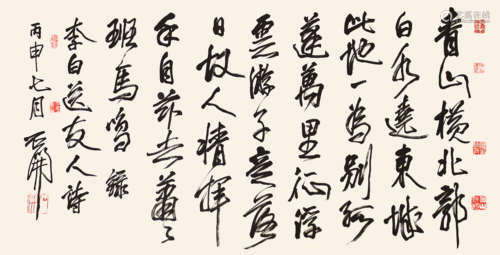 青山橫北郭
白水遶東城
此地一為別孤
蓬萬里征浮
雲游子意落
日故人情揮
手自茲去蕭々
班馬鳴 錄
李白送友人詩
丙申七月 石開